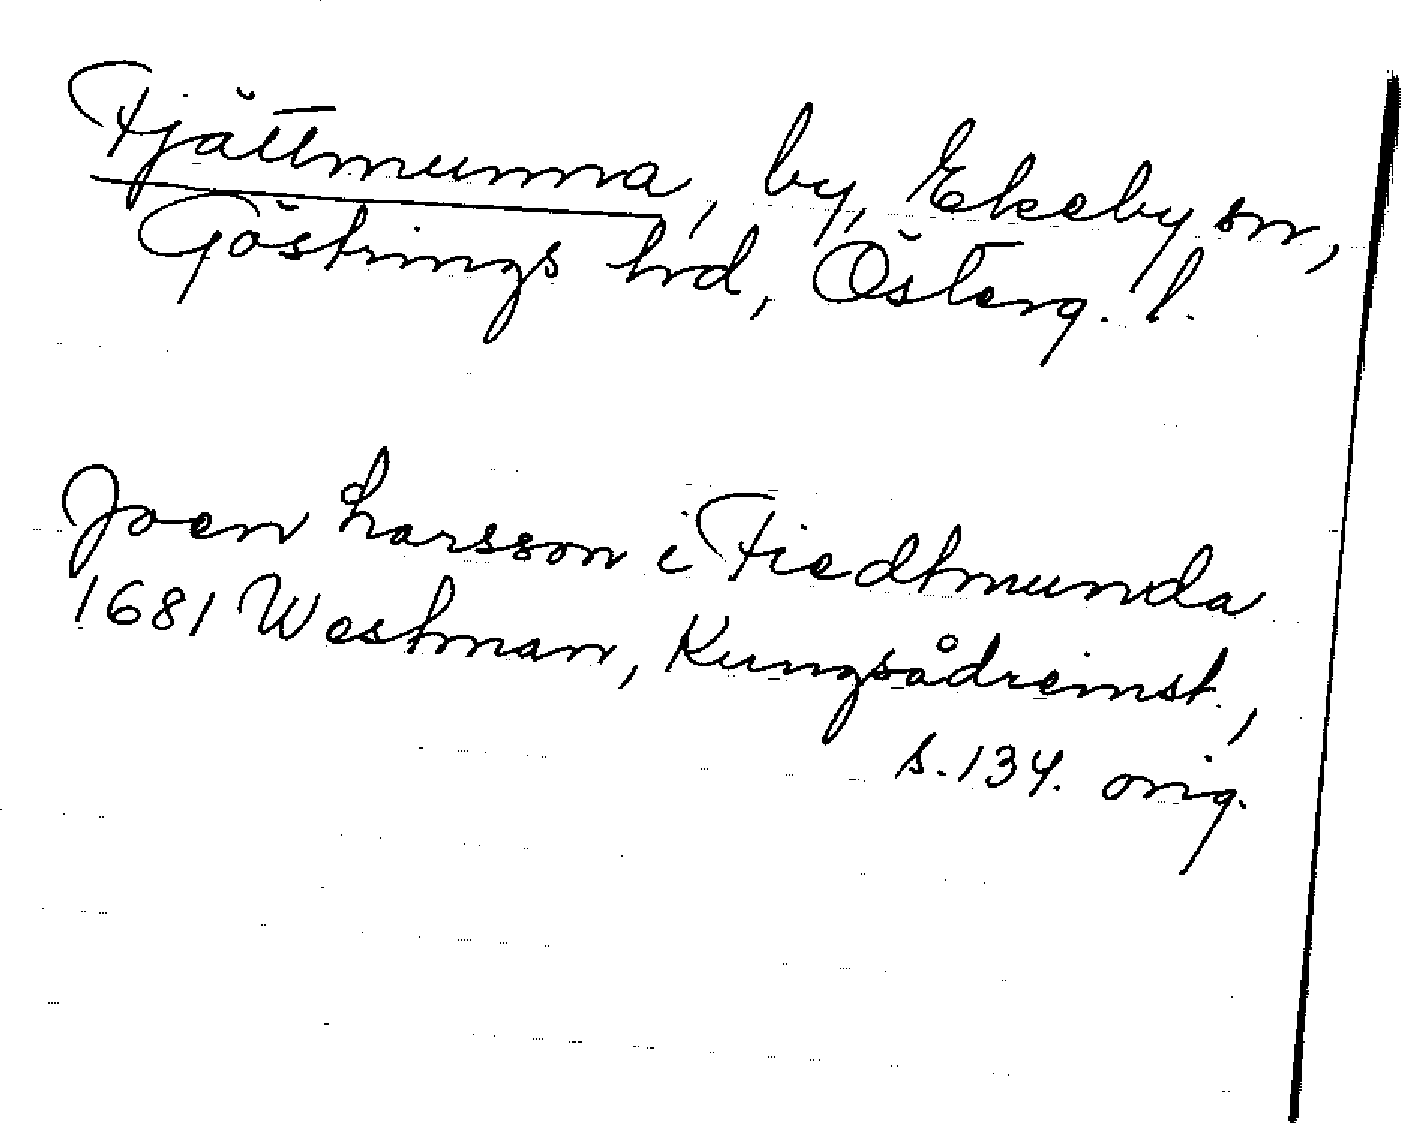 Fjättmunna, by, Ekeby sn,
Göstrings hd, Österg. l.
Joen Larsson i Fiedhmunda
1681 Westman, Kungsådreinst.,
s. 134. orig.